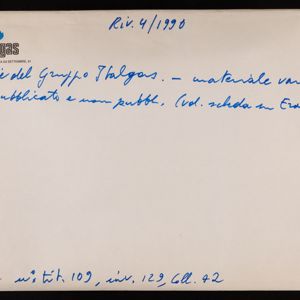 Riv. 4/1990
gas
del Gruppo Italgas. - materiale
pubblicato e non pubbl. (vd. scheda su
n° tit. 109, inv. 129, Coll. A2